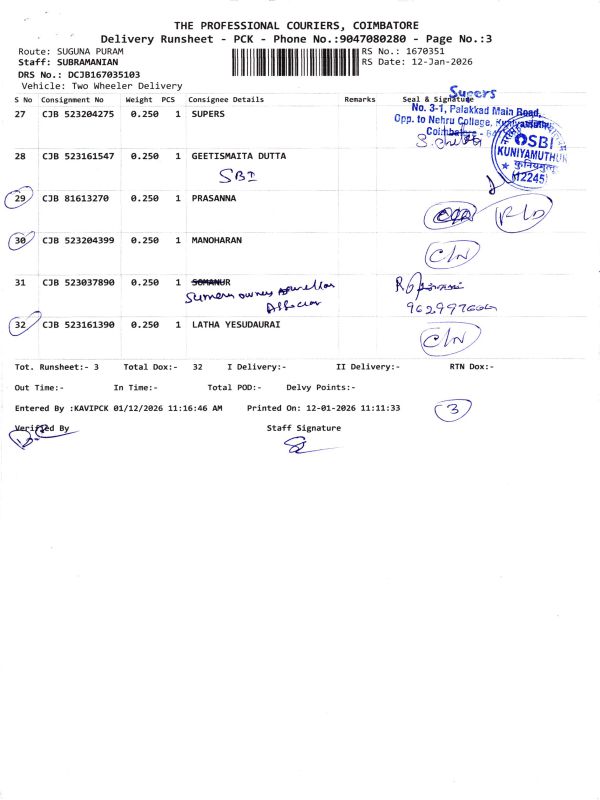 THE PROFESSIONAL COURIERS, COIMBATORE
Delivery Runsheet - PCK - Phone No.:9047080280 - Page No.:3
Route: SUGUNA PURAM
RS No.: 1670351
Staff: SUBRAMANIAN
RS Date: 12-Jan-2026
DRS No.: DCJB167035103
Vehicle: Two Wheeler Delivery
S No Consignment No Weight PCS Consignee Details Remarks Seal & Signature
Supers
27 CJB 523204275 0.250 1 SUPERS
No. 3-1, Palakkad Main Road,
Opp. to Nehru College, Kuniyamuthur
Coimbatore - 64
28 CJB 523161547 0.250 1 GEETISMAITA DUTTA
SBI
SBI
KUNIYAMUTHUR
(12245)
29 CJB 81613270 0.250 1 PRASANNA
R/D
30 CJB 523204399 0.250 1 MANOHARAN
C/N
31 CJB 523037890 0.250 1 SOMANUR
Sumeru owners
32 CJB 523161390 0.250 1 LATHA YESUDAURAI
C/N
Tot. Runsheet:- 3 Total Dox:- 32 I Delivery:- II Delivery:- RTN Dox:-
Out Time:- In Time:- Total POD:- Delvy Points:-
Entered By :KAVIPCK 01/12/2026 11:16:46 AM Printed On: 12-01-2026 11:11:33
3
Verified By Staff Signature